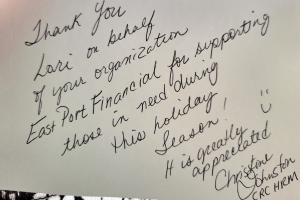 Thank You
Lori on behalf
of your organization
East Port Financial for supporting
those in need during
this holiday
Season!
It is greatly
appreciated
Christine
Johnston
CRC HRM